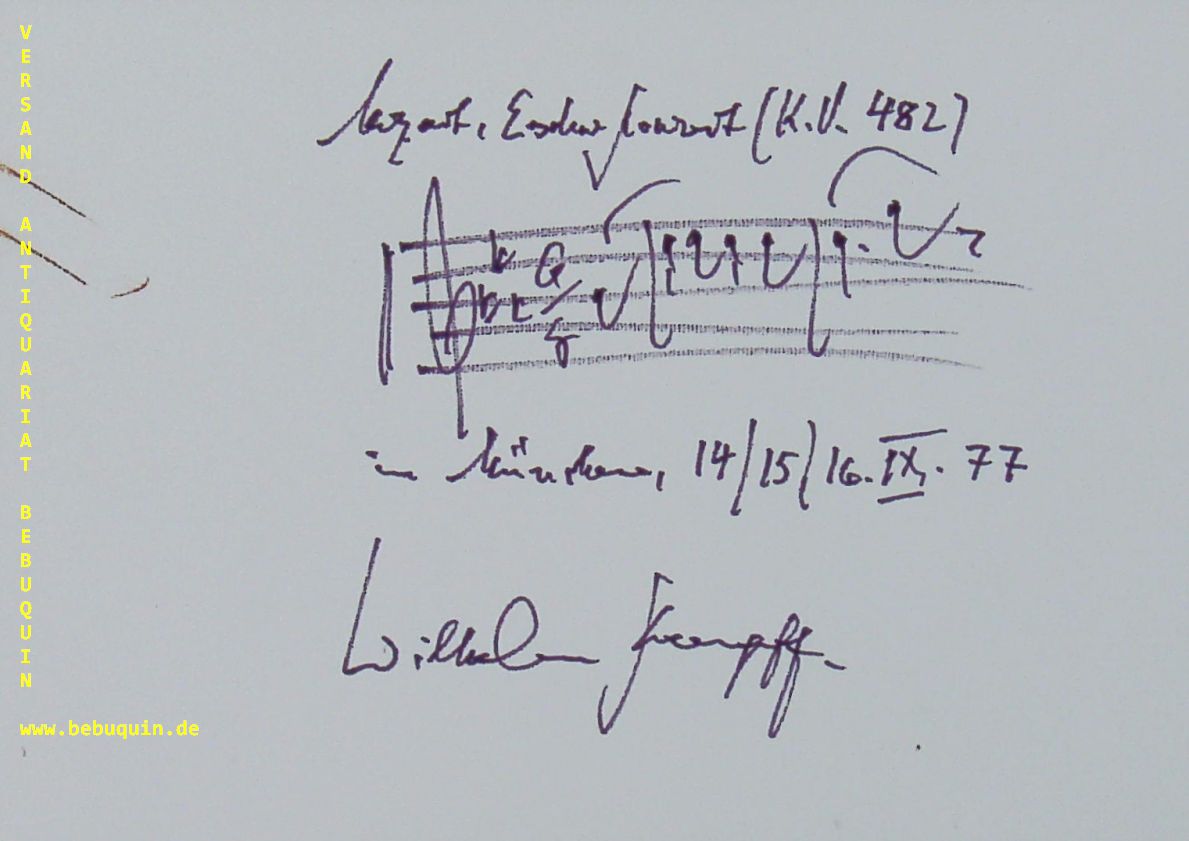 VERSAND ANTIQUARIAT BEBUQUIN
www.bebuquin.de
Mozart, Es dur Konzert (K.V. 482)
6/8
in München, 14/15/16. IX. 77
Wilhelm Kempff.